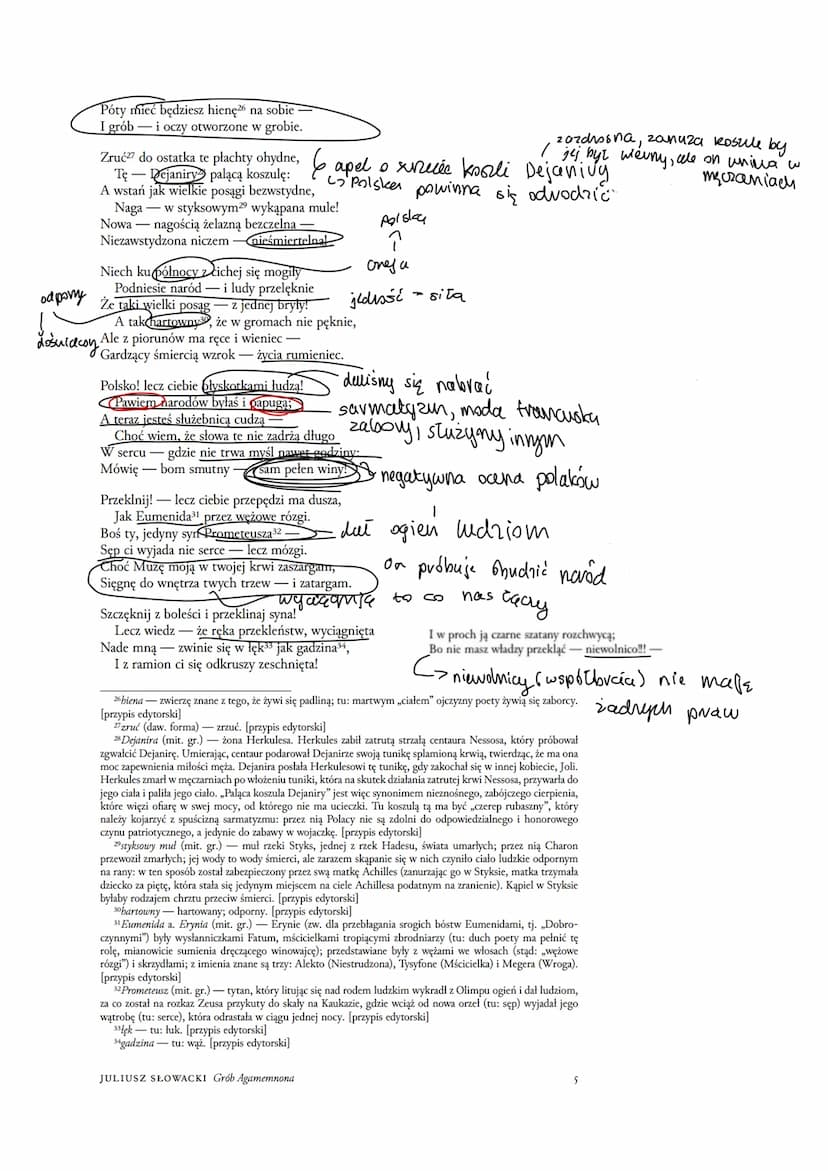 Póty mieć będziesz hienę²⁶ na sobie —
I grób — i oczy otworzone w grobie.
Zruć²⁷ do ostatka te płachty ohydne,
Tę — Dejaniry²⁸ palącą koszulę:
A wstań jak wielkie posągi bezwstydne,
Naga — w styksowym²⁹ wykąpana mule!
Nowa — nagością żelazną bezczelna —
Niezawstydzona niczem — nieśmiertelna!
zazdrosna, zanuża koszule by
jej był wierny, ale on umiera w
męczarniach
apel o zrzucenie koszli Dejaniry
↳ Polska powinna się odrodzić
Polska
Niech ku północy z cichej się mogiły
Podniesie naród — i ludy przelęknie
Że taki wielki posąg — z jednej bryły!
A tak hartowny³⁰, że w gromach nie pęknie,
Ale z piorunów ma ręce i wieniec —
Gardzący śmiercią wzrok — życia rumieniec.
jedność – siła
odporny
Polsko! lecz ciebie błyskotkami łudzą!
Pawiem narodów byłaś i papugą;
A teraz jesteś służebnicą cudzą —
Choć wiem, że słowa te nie zadrżą długo
W sercu — gdzie nie trwa myśl nawet godziny:
Mówię — bom smutny — i sam pełen winy!
daliśmy się nabrać
sarmatyzm, moda francuska
zabory, służymy innym
negatywna ocena polaków
Przeklnij! — lecz ciebie przepędzi ma dusza,
Jak Eumenida³¹ przez wężowe rózgi.
Boś ty, jedyny syn Prometeusza³² —
Sęp ci wyjada nie serce — lecz mózgi.
Choć Muzę moją w twojej krwi zaszargam,
Sięgnę do wnętrza twych trzew — i zatargam.
dał ogień ludziom
On próbuje obudzić naród
wyciągnię to co nas łączy
Szczęknij z boleści i przeklinaj syna!
Lecz wiedz — że ręka przekleństw, wyciągnięta
Nade mną — zwinie się w łęk³³ jak gadzina³⁴,
I z ramion ci się odkruszy zeschnięta!
I w proch ją czarne szatany rozchwycą;
Bo nie masz władzy przekląć — niewolnico!!! —
→ niewolnicy (współtwórcia) nie mają
żadnych praw
²⁶hiena — zwierzę znane z tego, że żywi się padliną; tu: martwym „ciałem” ojczyzny poety żywią się zaborcy.
[przypis edytorski]
²⁷zruć (daw. forma) — zrzuć. [przypis edytorski]
²⁸Dejanira (mit. gr.) — żona Herkulesa. Herkules zabił zatrutą strzałą centaura Nessosa, który próbował
zgwałcić Dejanirę. Umierając, centaur podarował Dejanirze swoją tunikę splamioną krwią, twierdząc, że ma ona
moc zapewnienia miłości męża. Dejanira posłała Herkulesowi tę tunikę, gdy zakochał się w innej kobiecie, Joli.
Herkules zmarł w męczarniach po włożeniu tuniki, która na skutek działania zatrutej krwi Nessosa, przywarła do
jego ciała i paliła jego ciało. „Paląca koszula Dejaniry” jest więc synonimem nieznośnego, zabójczego cierpienia,
które więzi ofiarę w swej mocy, od którego nie ma ucieczki. Tu koszulą tą ma być „czerep rubaszny”, który
należy kojarzyć z spuścizną sarmatyzmu: przez nią Polacy nie są zdolni do odpowiedzialnego i honorowego
czynu patriotycznego, a jedynie do zabawy w wojaczkę. [przypis edytorski]
²⁹styksowy muł (mit. gr.) — muł rzeki Styks, jednej z rzek Hadesu, świata umarłych; przez nią Charon
przewoził zmarłych; jej wody to wody śmierci, ale zarazem skąpanie się w nich czyniło ciało ludzkie odpornym
na rany: w ten sposób został zabezpieczony przez swą matkę Achilles (zanurzając go w Styksie, matka trzymała
dziecko za piętę, która stała się jedynym miejscem na ciele Achillesa podatnym na zranienie). Kąpiel w Styksie
byłaby rodzajem chrztu przeciw śmierci. [przypis edytorski]
³⁰hartowny — hartowany; odporny. [przypis edytorski]
³¹Eumenida a. Erynia (mit. gr.) — Erynie (zw. dla przebłagania srogich bóstw Eumenidami, tj. „Dobro-
czynnymi”) były wysłanniczkami Fatum, mścicielkami tropiącymi zbrodniarzy (tu: duch poety ma pełnić tę
rolę, mianowicie sumienia dręczącego winowajcę); przedstawiane były z wężami we włosach (stąd: „wężowe
rózgi”) i skrzydłami; z imienia znane są trzy: Alekto (Niestrudzona), Tysyfone (Mścicielka) i Megera (Wroga).
[przypis edytorski]
³²Prometeusz (mit. gr.) — tytan, który litując się nad rodem ludzkim wykradł z Olimpu ogień i dał ludziom,
za co został na rozkaz Zeusa przykuty do skały na Kaukazie, gdzie wciąż od nowa orzeł (tu: sęp) wyjadał jego
wątrobę (tu: serce), która odrastała w ciągu jednej nocy. [przypis edytorski]
³³łęk — tu: łuk. [przypis edytorski]
³⁴gadzina — tu: wąż. [przypis edytorski]
JULIUSZ SŁOWACKI Grób Agamemnona 5